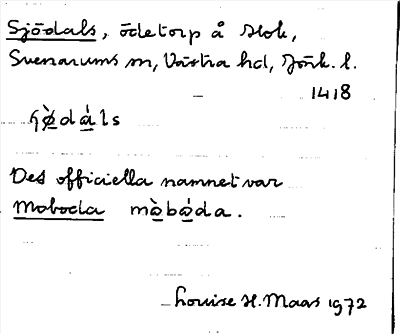 Sjödals, ödetorp å Stok,
Svenarums sn, Västra hd, Jönk. l.
1418
ɧø̀dáls
Det officiella namnet var
Moboda mòbóda.
Louise H. Maas 1972